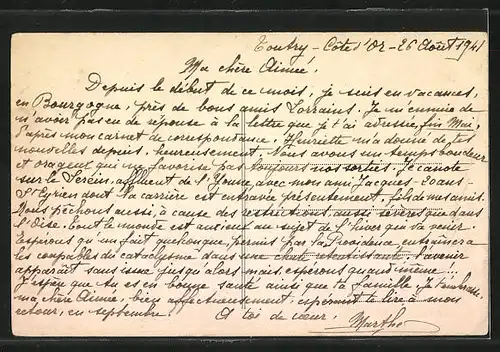 Toutry - Côte d'Or - 26 Août 1941
Ma chère Aimée,
Depuis le début de ce mois, je suis en vacances,
en Bourgogne, près de bons amis Lorrains. Je m'ennuie de
n'avoir pas eu de réponse à la lettre que je t'ai adressée, fin Mai,
d'après mon carnet de correspondance. Henriette m'a donné de tes
nouvelles depuis, heureusement. Nous avons un temps boudeur
et orageux qui ne favorise pas toujours nos sorties. Je canote
sur le Serein, affluent de l'Yonne, avec mon ami Jacques, 20 ans -
St Cyrien dont la carrière est entravée présentement, fils de mes amis.
Nous pêchons aussi, à cause des restrictions aussi sévères que dans
l'Oise. Tout le monde est anxieux au sujet de l'hiver qui va venir.
Espérons qu'un fait quelconque, permis par la Providence entraînera
les coupables du cataclysme dans une chute retentissante. L'avenir
apparaît sans issue jusqu'alors mais, espérons quand même...
J'espère que tu es en bonne santé ainsi que ta famille. Je t'embrasse,
ma chère Aimée, bien affectueusement, espérant te lire à mon
retour, en septembre. A toi de cœur. Marthe